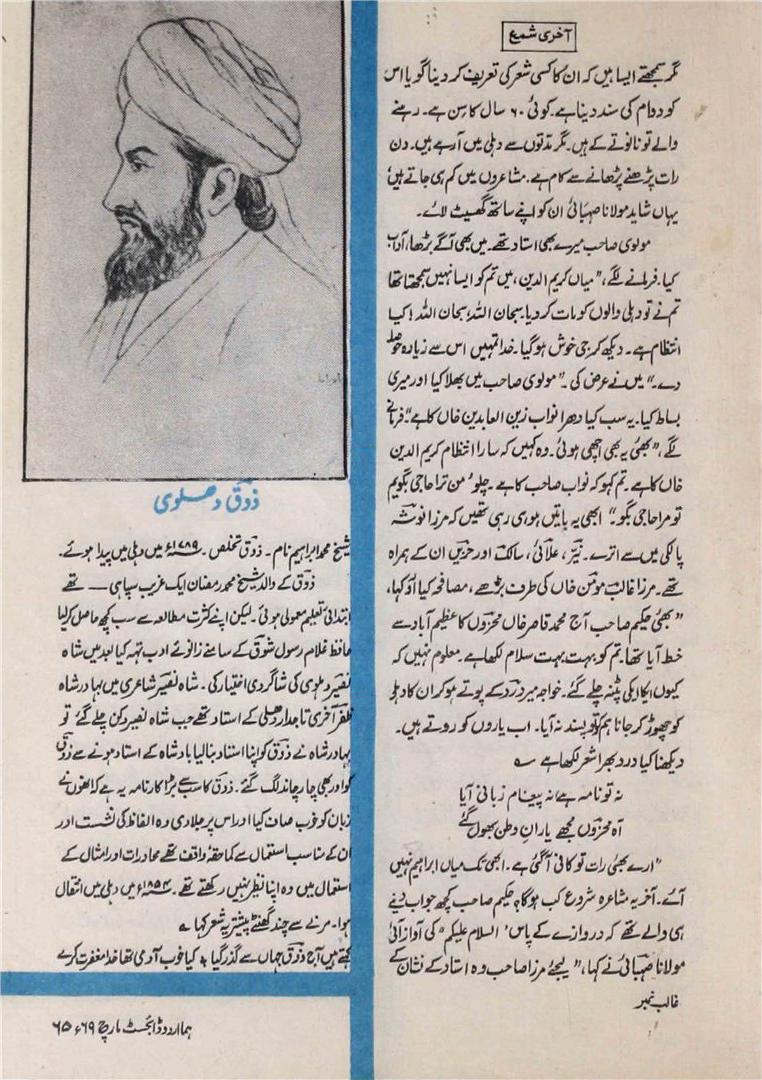 آخری شمع
مگر سمجھتے ایسا ہیں کہ ان کا کسی شعر کی تعریف کر دینا گویا اس
کو دوام کی سند دینا ہے۔ کوئی ۶۰ سال کا سِن ہے۔ رہنے
والے تو نانوتے کے ہیں۔ مگر مدتوں سے دہلی میں آ رہے ہیں۔ دن
رات پڑھنے پڑھانے سے کام ہے۔ مشاعروں میں کم ہی جاتے ہیں
یہاں شاید مولانا صہبائی ان کو اپنے ساتھ گھسیٹ لائے۔
مولوی صاحب میرے بھی استاد تھے۔ میں بھی آگے بڑھا، آداب
کیا۔ فرمانے لگے، "میاں کریم الدین، میں تم کو ایسا نہیں سمجھتا تھا
تم نے تو دہلی والوں کو مات کر دیا۔ سبحان اللہ! سبحان اللہ! کیا
انتظام ہے۔ دیکھ کر جی خوش ہو گیا۔ خدا تمہیں اس سے زیادہ حوصلہ
دے۔" میں نے عرض کی۔ "مولوی صاحب میں بھلا کیا اور میری
بساط کیا۔ یہ سب کیا دھرا نواب زین العابدین خاں کا ہے" فرمانے
لگے، "بھئی یہ بھی اچھی ہوئی۔ وہ کہیں کہ سارا انتظام کریم الدین
خاں کا ہے۔ تم کہو کہ نواب صاحب کا ہے۔ چلو' من ترا حاجی بگویم
تو مرا حاجی بگو۔" ابھی یہ باتیں ہو رہی رہی تھیں کہ مرزا نوشہ
پالکی میں سے اترے۔ نیّر، علائی، سالک اور حزیں ان کے ہمراہ
تھے۔ مرزا غالب مومن خاں کی طرف بڑھے، مصافحہ کیا اور کہا،
"بھئی حکیم صاحب آج محمد ناصر خاں محزوں کا عظیم آباد سے
خط آیا تھا۔ تم کو بہت بہت سلام لکھا ہے۔ معلوم نہیں کہ
کیوں ایکا ایکی پٹنہ چلے گئے۔ خواجہ میر درد کے پوتے ہو کر ان کا دہلی
کو چھوڑ کر جانا ہم کو تو پسند نہ آیا۔ اب یاروں کو روتے ہیں۔
دیکھنا کیا درد بھرا شعر لکھا ہے ؎
نہ تو نامہ ہے نہ پیغام زبانی آیا
آہ محزوں مجھے یارانِ وطن بھول گئے
"ارے بھئی رات تو کافی آ گئی ہے۔ ابھی تک میاں ابراہیم نہیں
آئے۔ آخر یہ مشاعرہ شروع کب ہوگا؟ حکیم صاحب کچھ جواب دینے
ہی والے تھے کہ دروازے کے پاس 'السلام علیکم' کی آواز آئی
مولانا صہبائی نے کہا، "لیجئے مرزا صاحب وہ استاد کے نشان کے
غالب نمبر
ذوق دھلوی
شیخ محمد ابراہیم نام۔ ذوق تخلص۔ ۱۷۸۹ء میں دہلی میں پیدا ہوئے۔
ذوق کے والد شیخ محمد رمضان ایک غریب سپاہی — تھے
ابتدائی تعلیم معمولی ہوئی۔ لیکن اپنے کثرت مطالعہ سے سب کچھ حاصل کر لیا
حافظ غلام رسول شوق کے سامنے زانوئے ادب تہہ کیا بعد میں شاہ
نصیر دہلوی کی شاگردی اختیار کی۔ شاہ نصیر شاعری میں بہادر شاہ
ظفر آخری تاجدار دھلی کے استاد تھے جب شاہ نصیر دکن چلے گئے تو
بہادر شاہ نے ذوق کو اپنا استاد بنا لیا بادشاہ کے استاد ہونے سے ذوق
کو اور بھی چار چاند لگ گئے۔ ذوق کا سب سے بڑا کارنامہ یہ ہے کہ انھوں نے
زبان کو خوب صاف کیا اور اس پر جلا دی وہ الفاظ کی نشست اور
ان کے مناسب استعمال سے کما حقہٗ واقف تھے محاورات اور امثال کے
استعمال میں وہ اپنا نظیر نہیں رکھتے تھے۔ ۱۸۵۴ء میں دہلی میں انتقال
ہوا۔ مرنے سے چند گھنٹے پیشتر یہ شعر کہا ؎
کہتے ہیں آج ذوق جہاں سے گذر گیا ؛ کیا خوب آدمی تھا خدا مغفرت کرے
ہما اردو ڈائجسٹ مارچ ۶۹ء ۶۵